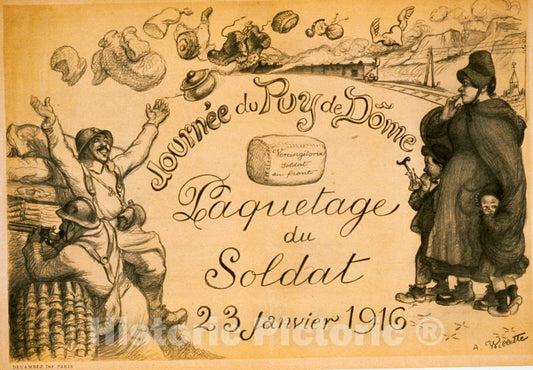 Journée du Puy de Dôme
Vercingétorix
Soldat
au front
Paquetage
du
Soldat
23 janvier 1916
Historic Pictoric ®
A. Willette
DEVAMBEZ IMP. PARIS